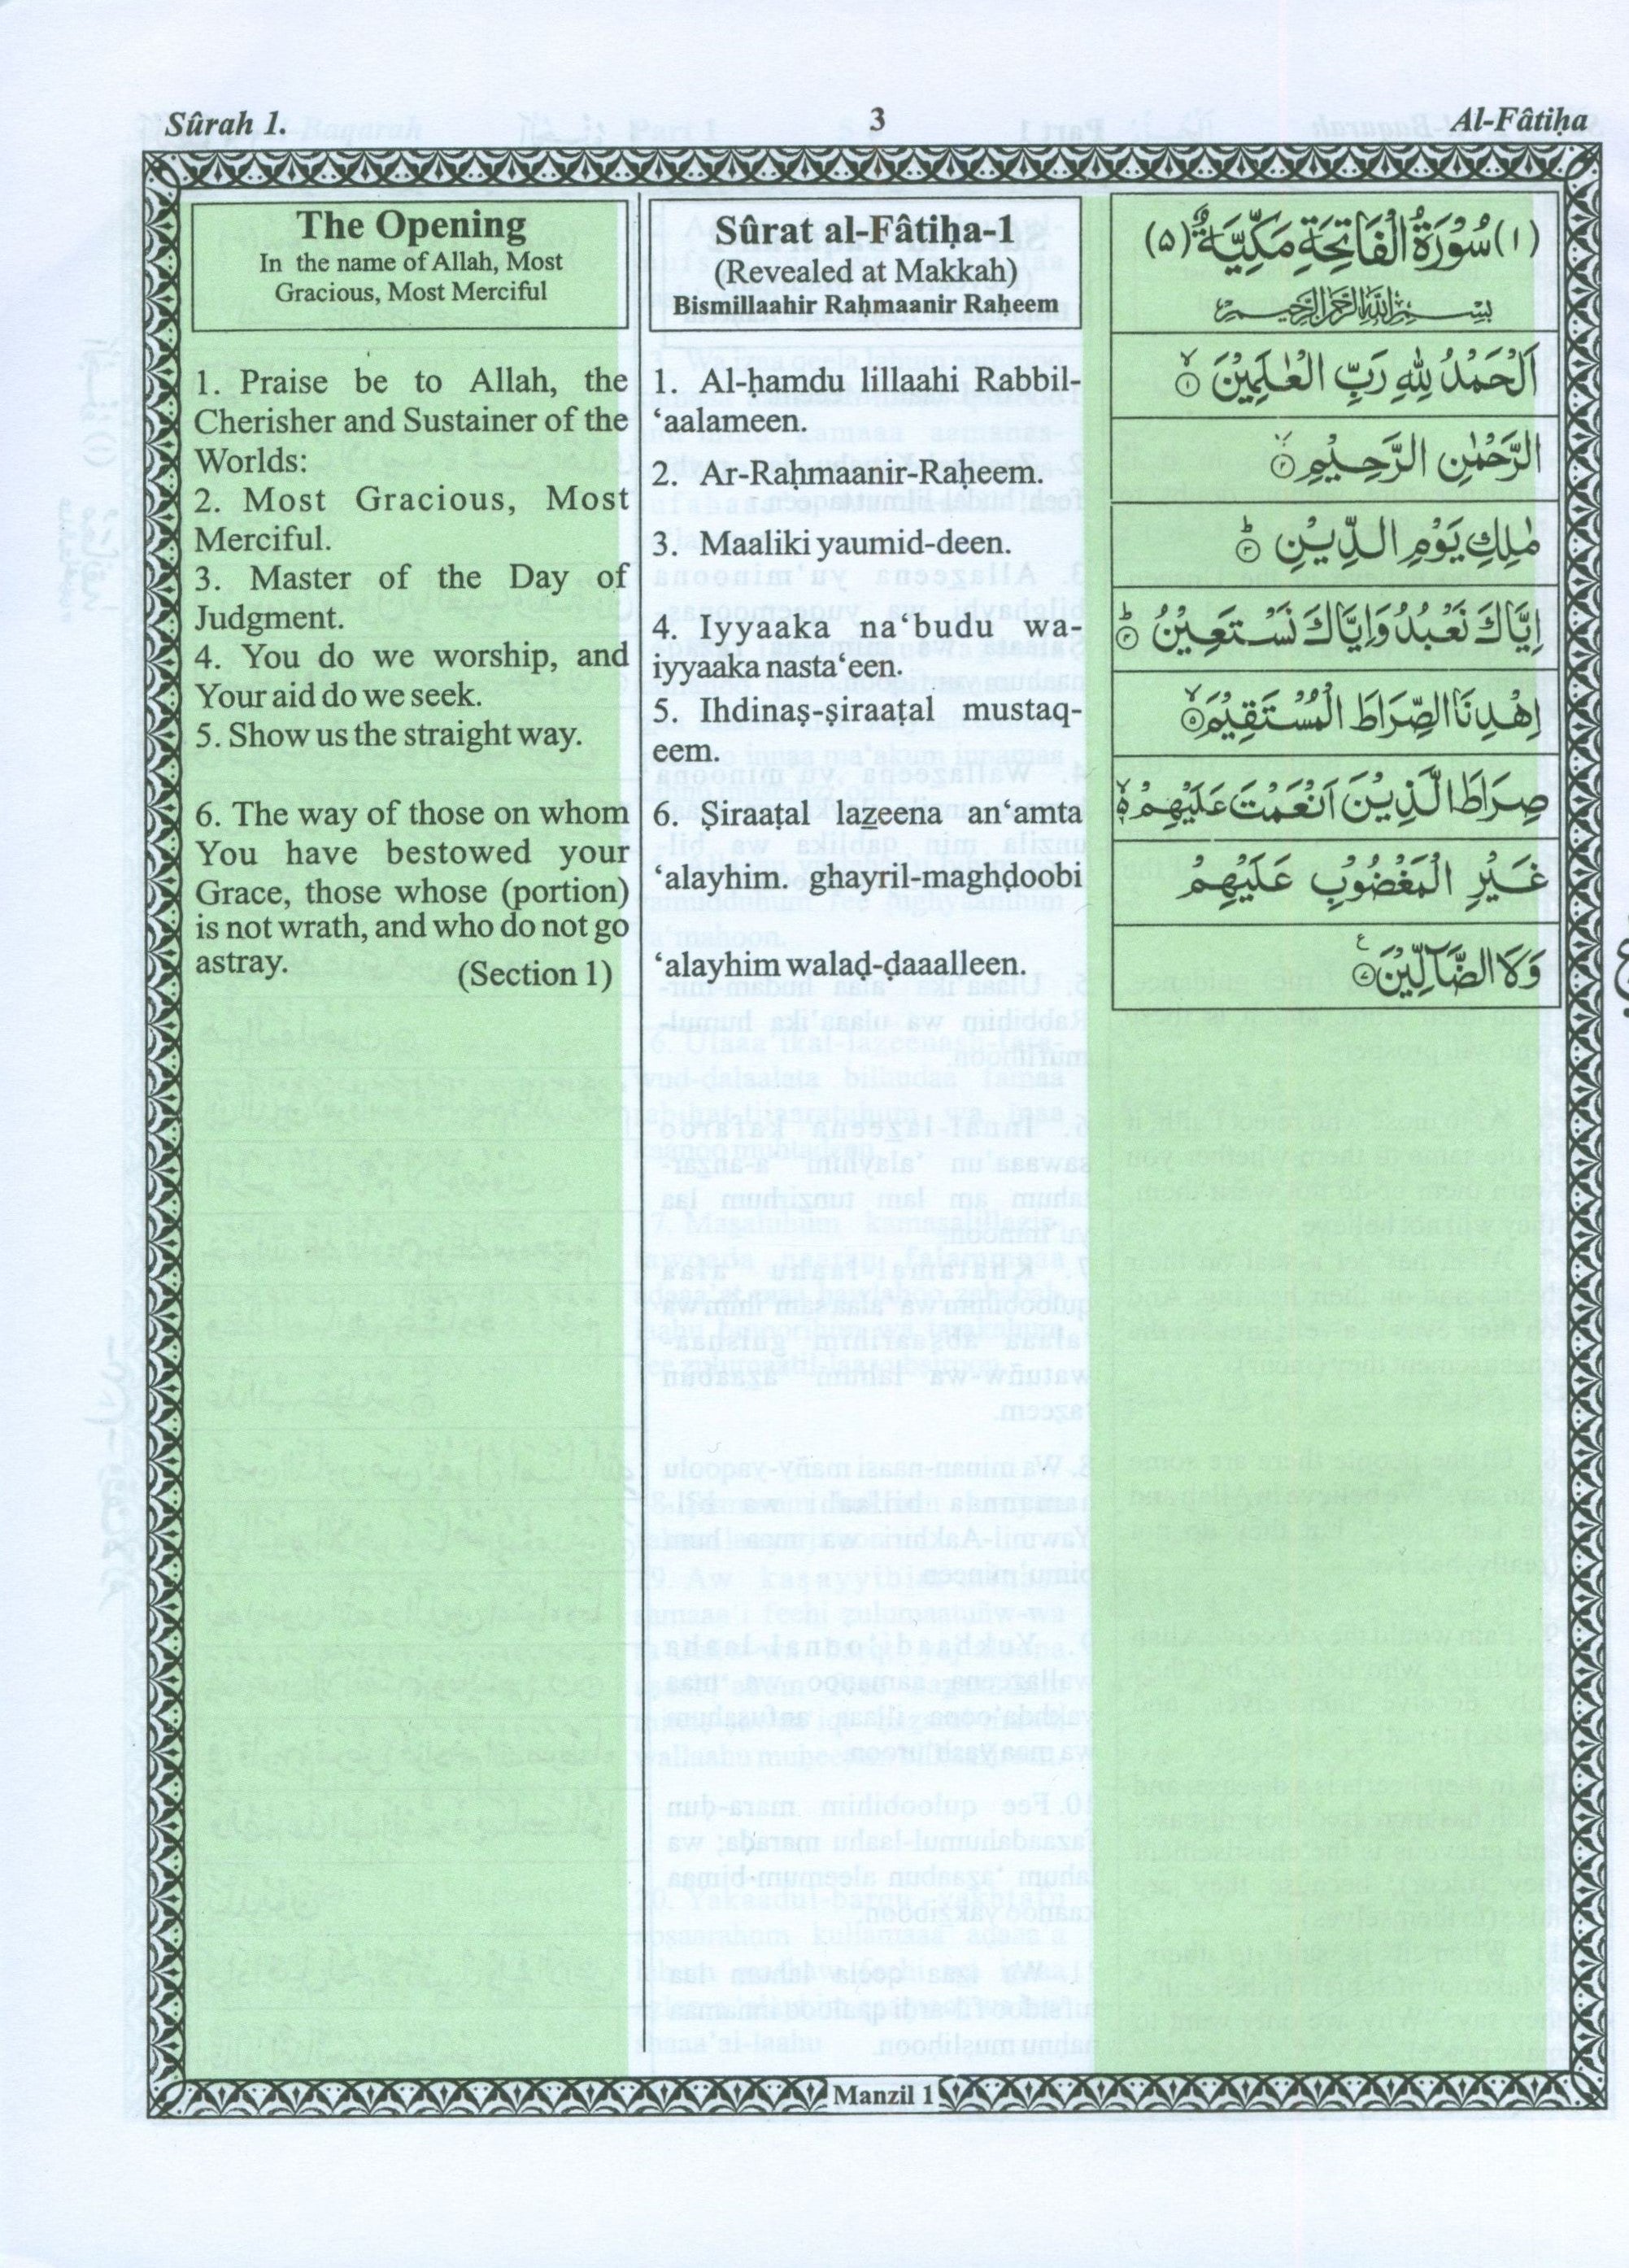 Sûrah 1.
3
Al-Fâtiḥa
The Opening
In the name of Allah, Most
Gracious, Most Merciful
1. Praise be to Allah, the
Cherisher and Sustainer of the
Worlds:
2. Most Gracious, Most
Merciful.
3. Master of the Day of
Judgment.
4. You do we worship, and
Your aid do we seek.
5. Show us the straight way.
6. The way of those on whom
You have bestowed your
Grace, those whose (portion)
is not wrath, and who do not go
astray.
(Section 1)
Sûrat al-Fâtiḥa-1
(Revealed at Makkah)
Bismillaahir Raḥmaanir Raḥeem
1. Al-ḥamdu lillaahi Rabbil-
‘aalameen.
2. Ar-Raḥmaanir-Raḥeem.
3. Maaliki yaumid-deen.
4. Iyyaaka na‘budu wa-
iyyaaka nasta‘een.
5. Ihdinaṣ-ṣiraaṭal mustaq-
eem.
6. Ṣiraaṭal lazeena an‘amta
‘alayhim. ghayril-maghḍoobi
‘alayhim walaḍ-ḍaaalleen.
(١) سُوْرَةُ الْفَاتِحَةِ مَكِّيَّةٌ (٥)
بِسْمِ اللهِ الرَّحْمٰنِ الرَّحِيْمِ
اَلْحَمْدُ لِلّٰهِ رَبِّ الْعٰلَمِيْنَ ۙ ١
الرَّحْمٰنِ الرَّحِيْمِ ۙ ٢
مٰلِكِ يَوْمِ الدِّيْنِ ؕ ٣
اِيَّاكَ نَعْبُدُ وَاِيَّاكَ نَسْتَعِيْنُ ؕ ٤
اِهْدِنَا الصِّرَاطَ الْمُسْتَقِيْمَ ۙ ٥
صِرَاطَ الَّذِيْنَ اَنْعَمْتَ عَلَيْهِمْ ۙ ٦
غَيْرِ الْمَغْضُوْبِ عَلَيْهِمْ
وَلَا الضَّآلِّيْنَ ٧
Manzil 1